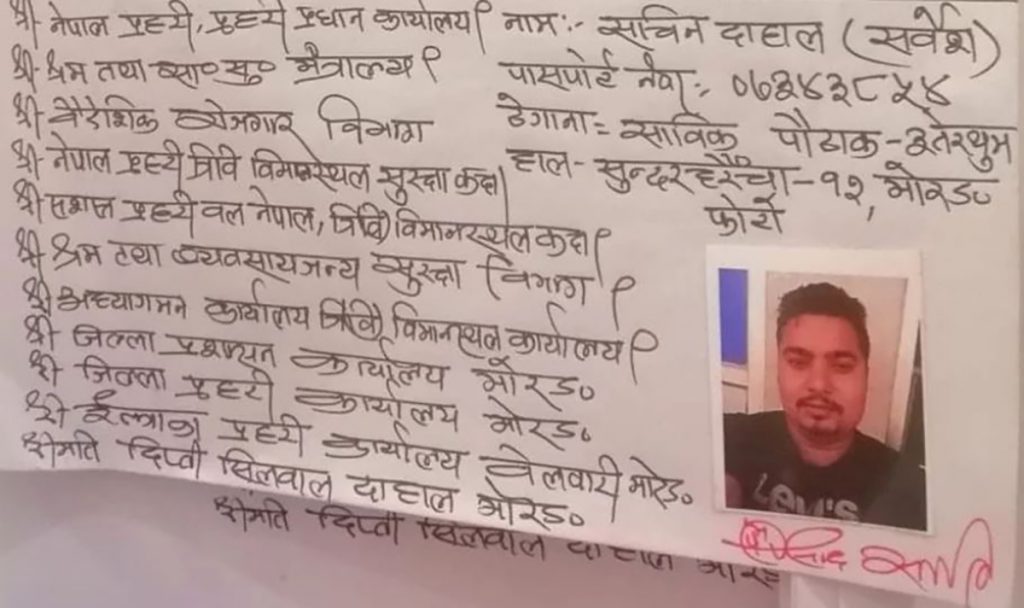 श्री नेपाल प्रहरी, प्रहरी प्रधान कार्यालय।
श्री श्रम तथा व्या० सु० मंत्रालय।
श्री वैदेशिक रोजगार विभाग
श्री नेपाल प्रहरी त्रिवि विमानस्थल सुरक्षा कक्ष।
श्री सशस्त्र प्रहरी वल नेपाल, त्रिवि विमानस्थल कक्ष।
श्री श्रम तथा व्यवसायजन्य सुरक्षा विभाग।
श्री अध्यागमन कार्यालय त्रिवि विमानस्थल कार्यालय।
श्री जिल्ला प्रशासन कार्यालय मोरङ०
श्री जिल्ला प्रहरी कार्यालय मोरङ०
श्री ईलाका प्रहरी कार्यालय वेलवारी मोरङ०
श्रीमति दिप्ती सिलवाल दाहाल मोरङ०
श्रीमति दिप्ती सिलवाल दाहाल मोरङ
नाम:- सचिन दाहाल (सर्वेश)
पासपोर्ट नंवर:- ०७३४३८५४
ठेगाना:- साविक पौठाक-
हाल- सुन्दरहरैंचा-१२, मोरङ०
फोटो
LEVI'S